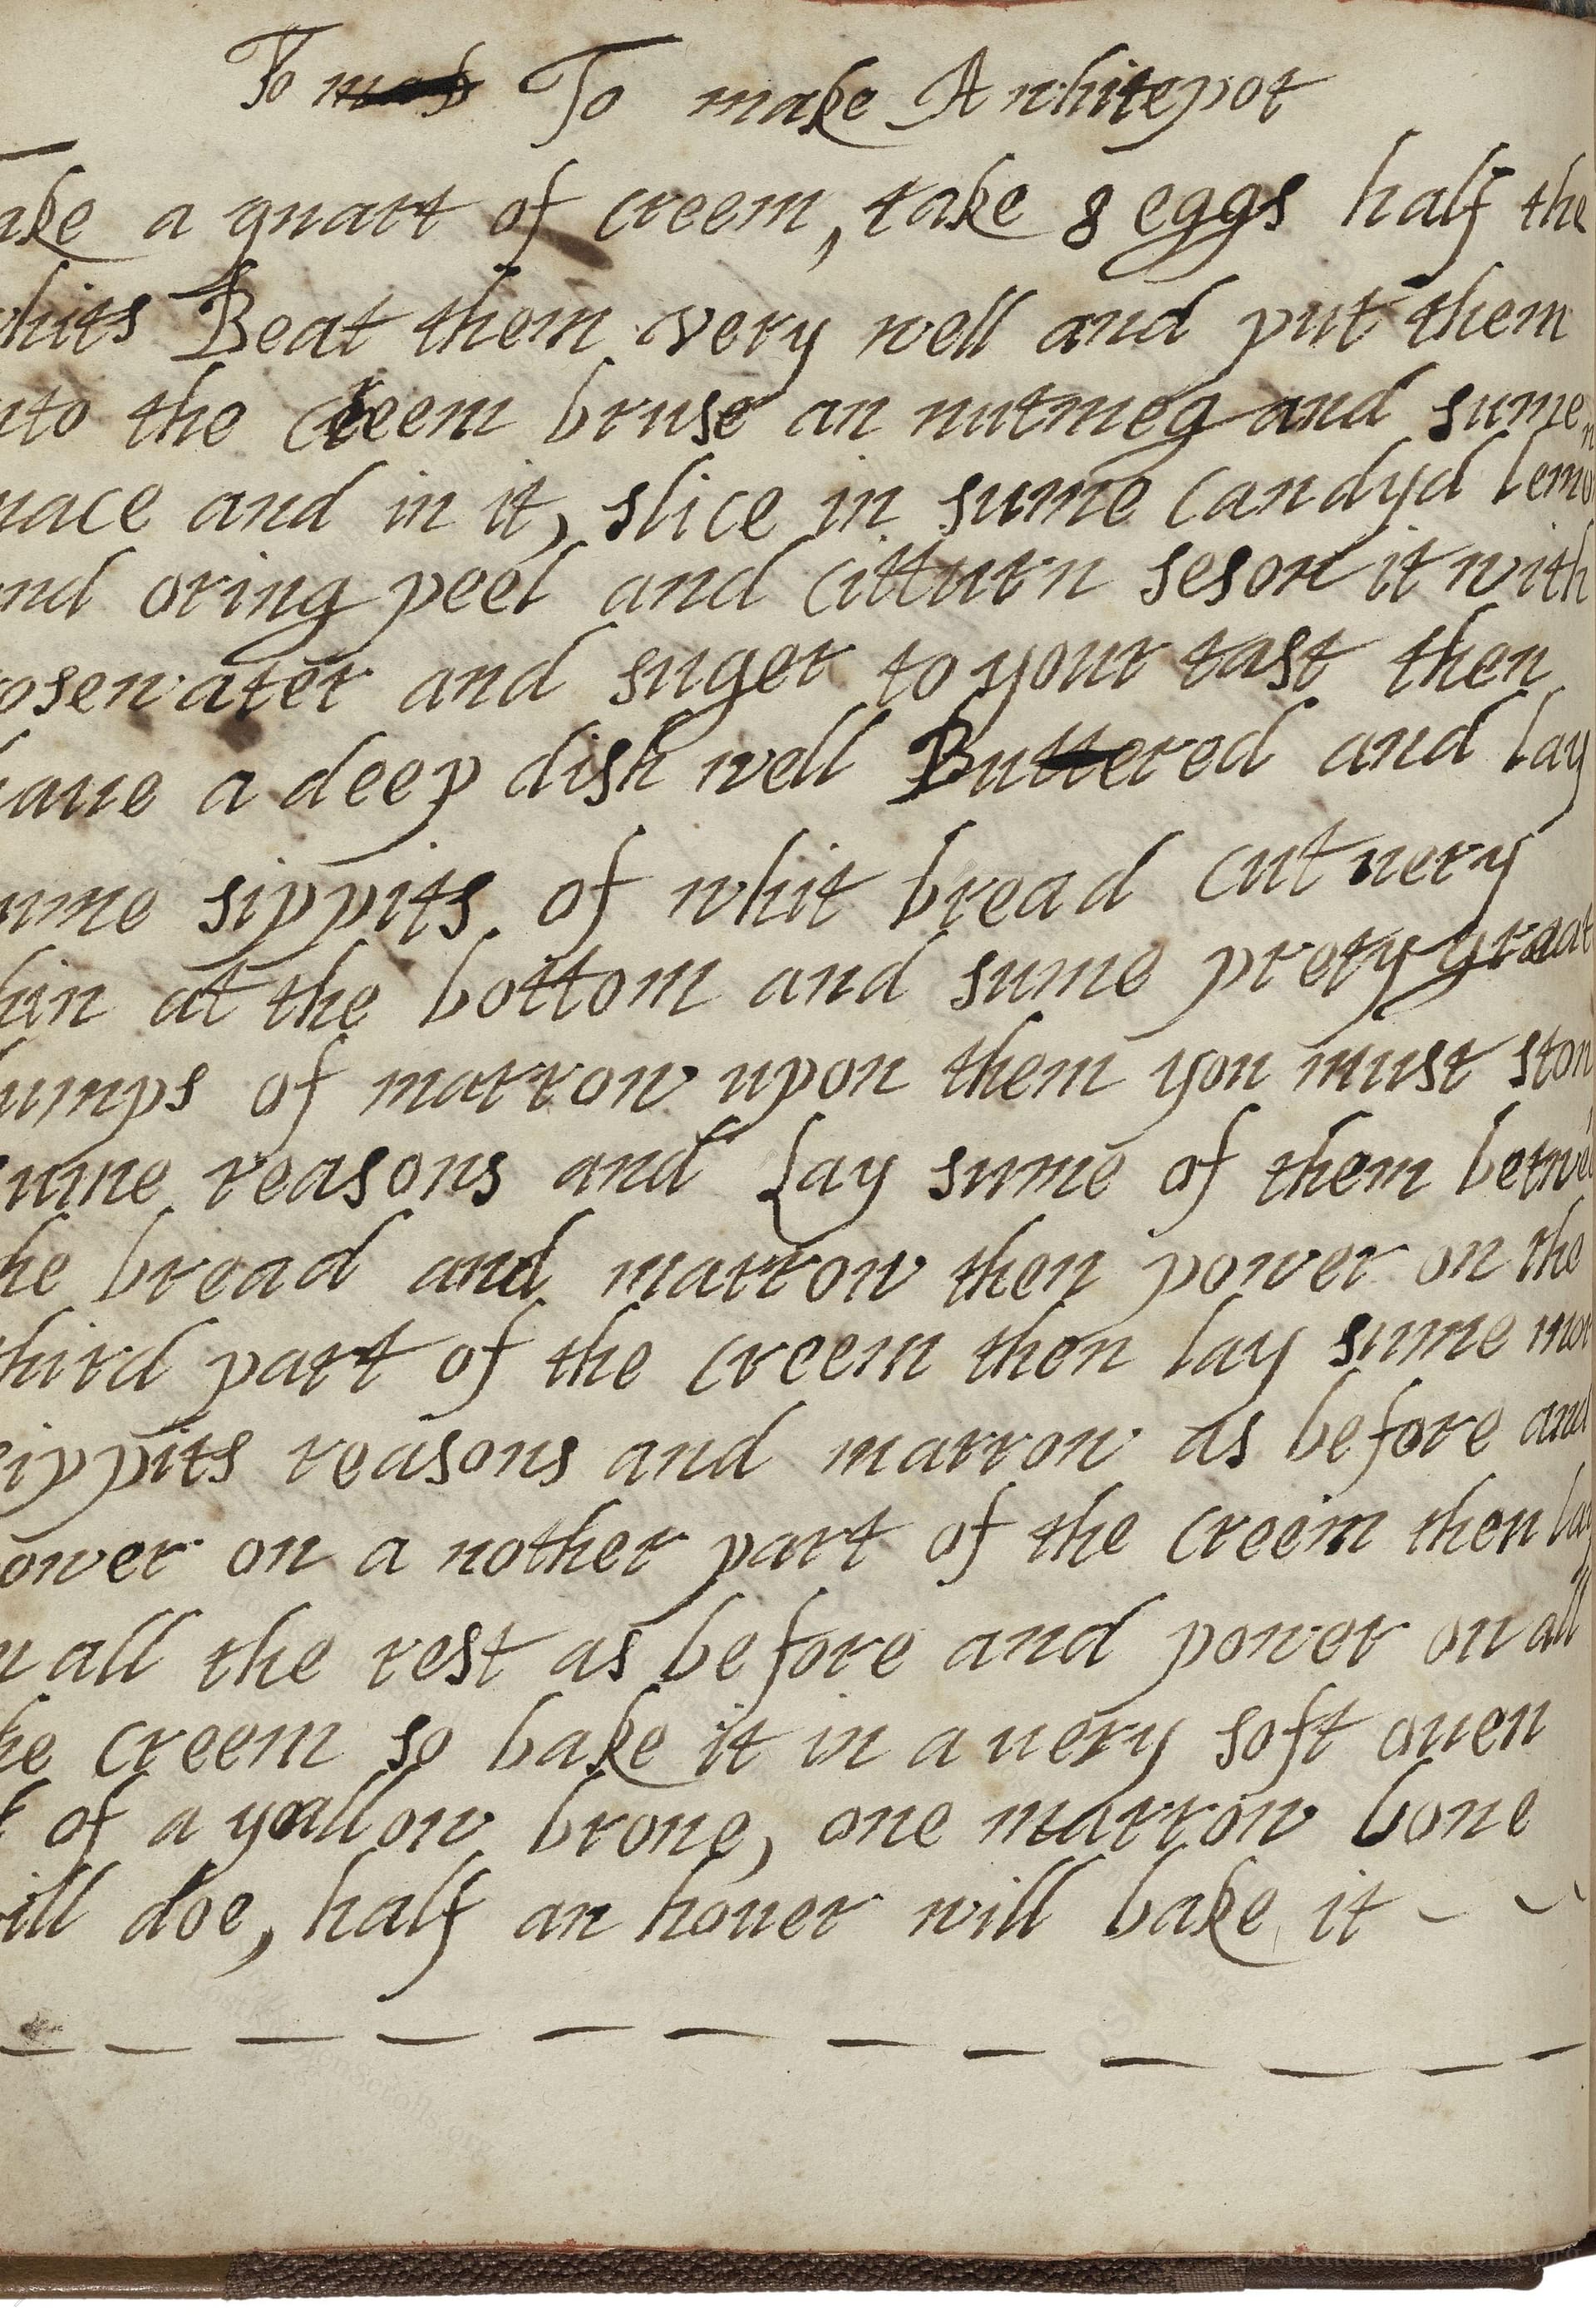 To To make A whitepot
ake a quart of creem, take 8 eggs half the
whits Beat them very well and put them
nto the creem bruse an nutmeg and sume
mace and in it, slice in sume candyd lemo
nd oring peel and citturn seson it with
rosewater and suger to your tast then
haue a deep dish well Buttered and lay
ume sippits of whit bread cut uery
hin at the bottom and sume prety graat
lumps of marrow upon them you must ston
sume reasons and Lay sume of them betwe
he bread and marrow then power on the
third part of the creem then lay sume mor
sippits reasons and marrow as before and
ower on a nother part of the creem then lay
n all the rest as before and power on all
he creem so bake it in a uery soft ouen
of a yallow brone, one marrow bone
will doe, half an houer will bake it